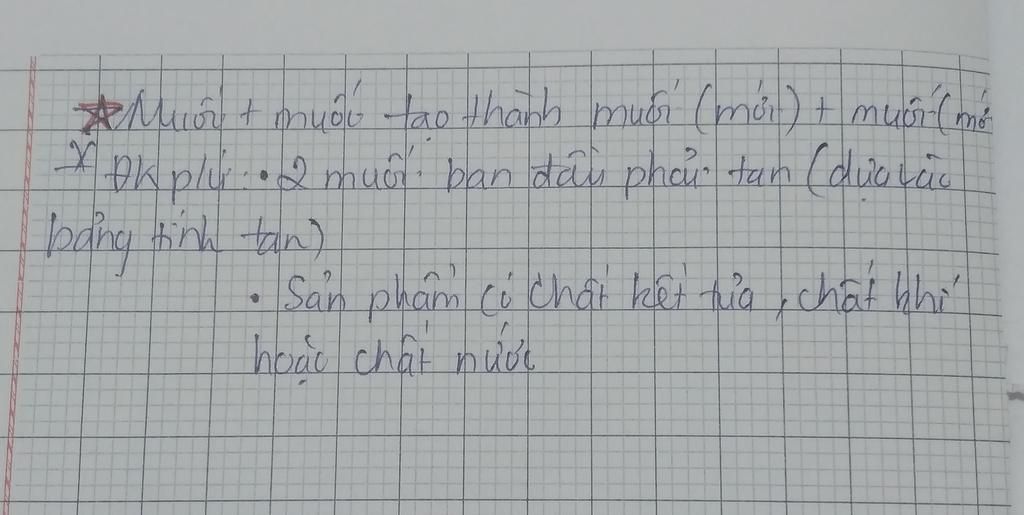 ☆ Muối + muối tạo thành muối (mới) + muối (mớ
* ĐK pứ: • 2 muối ban đầu phải tan (dựa vào
bảng tính tan)
• Sản phẩm có chất kết tủa, chất khí
hoặc chất nước